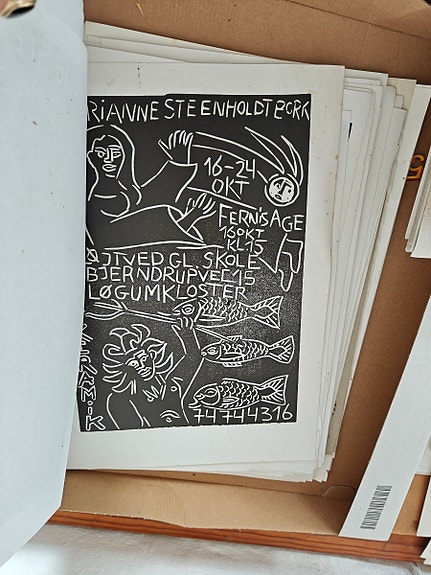 RIANNE STEENHOLDT BORK
16-24
OKT
FERNISAGE
16 OKT
KL 15
ØJTVED GL. SKOLE
BJERNDRUPVEJ 15
LØGUMKLOSTER
74744316